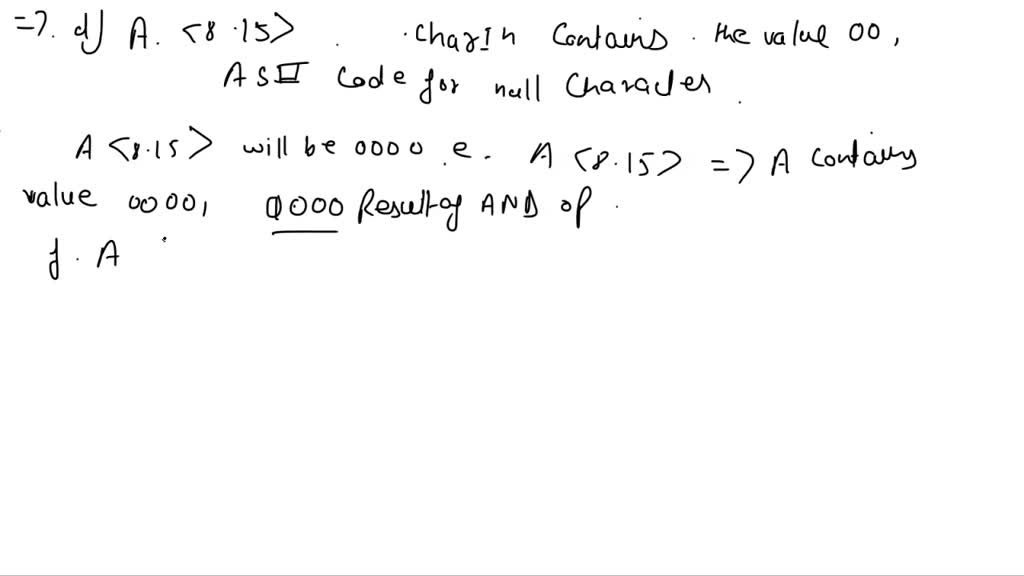 =7. d) A. <8.15> . . charIn Contains . the value 00,
ASII Code for null Character .
A <8.15> will be 0000 .e. A <8.15> => A contains
value 0000, 0000 Result of AND of .
f. A